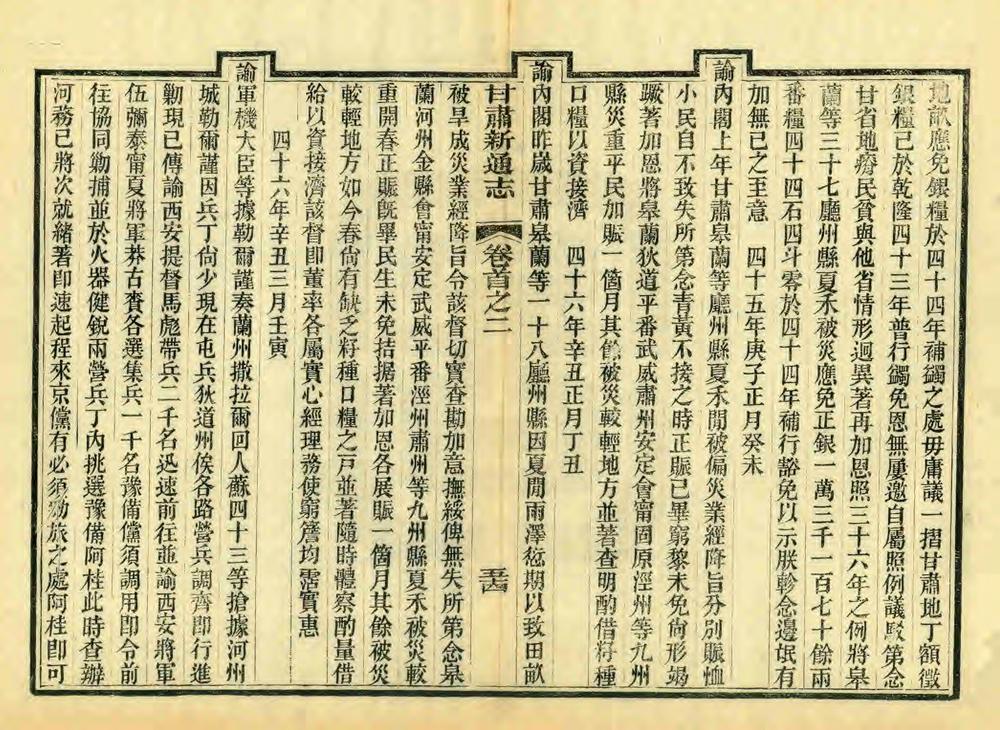 地畝應免銀糧於四十四年補蠲之處毋庸議一摺甘肅地丁額徵
銀糧已於乾隆四十三年普行蠲免恩無屢邀自屬照例議駁第念
甘省地瘠民貧與他省情形迥異著再加恩照三十六年之例將皋
蘭等三十七廳州縣夏禾被災應免正銀一萬三千一百七十餘兩
番糧四十四石四斗零於四十四年補行豁免以示朕軫念邊氓有
加無已之至意　四十五年庚子正月癸未
諭內閣上年甘肅皋蘭等廳州縣夏禾閒被偏災業經降旨分別賑恤
小民自不致失所第念青黃不接之時正賑已畢窮黎未免尙形竭
蹶著加恩將皋蘭狄道平番武威肅州安定會甯固原涇州等九州
縣災重平民加賑一箇月其餘被災較輕地方並著查明酌借籽種
口糧以資接濟　四十六年辛丑正月丁丑
諭內閣昨歲甘肅皋蘭等一十八廳州縣因夏閒雨澤愆期以致田畝
甘肅新通志　卷首之二　五十四
被旱成災業經降旨令該督切實查勘加意撫綏俾無失所第念皋
蘭河州金縣會甯安定武威平番涇州肅州等九州縣夏禾被災較
重開春正賑旣畢民生未免拮据著加恩各展賑一箇月其餘被災
較輕地方如今春尙有缺乏籽種口糧之戸並著隨時體察酌量借
給以資接濟該督卽董率各屬實心經理務使窮簷均霑實惠
四十六年辛丑三月壬寅
諭軍機大臣等據勒爾謹奏蘭州撒拉爾回人蘇四十三等搶據河州
城勒爾謹因兵丁尙少現在屯兵狄道州俟各路營兵調齊卽行進
勦現已傳諭西安提督馬彪帶兵二千名迅速前往並諭西安將軍
伍彌泰甯夏將軍莽古賚各選集兵一千名豫備儻須調用卽令前
往協同勦捕並於火器健銳兩營兵丁內挑選豫備阿桂此時查辦
河務已將次就緒著卽速起程來京儻有必須勦旅之處阿桂卽可